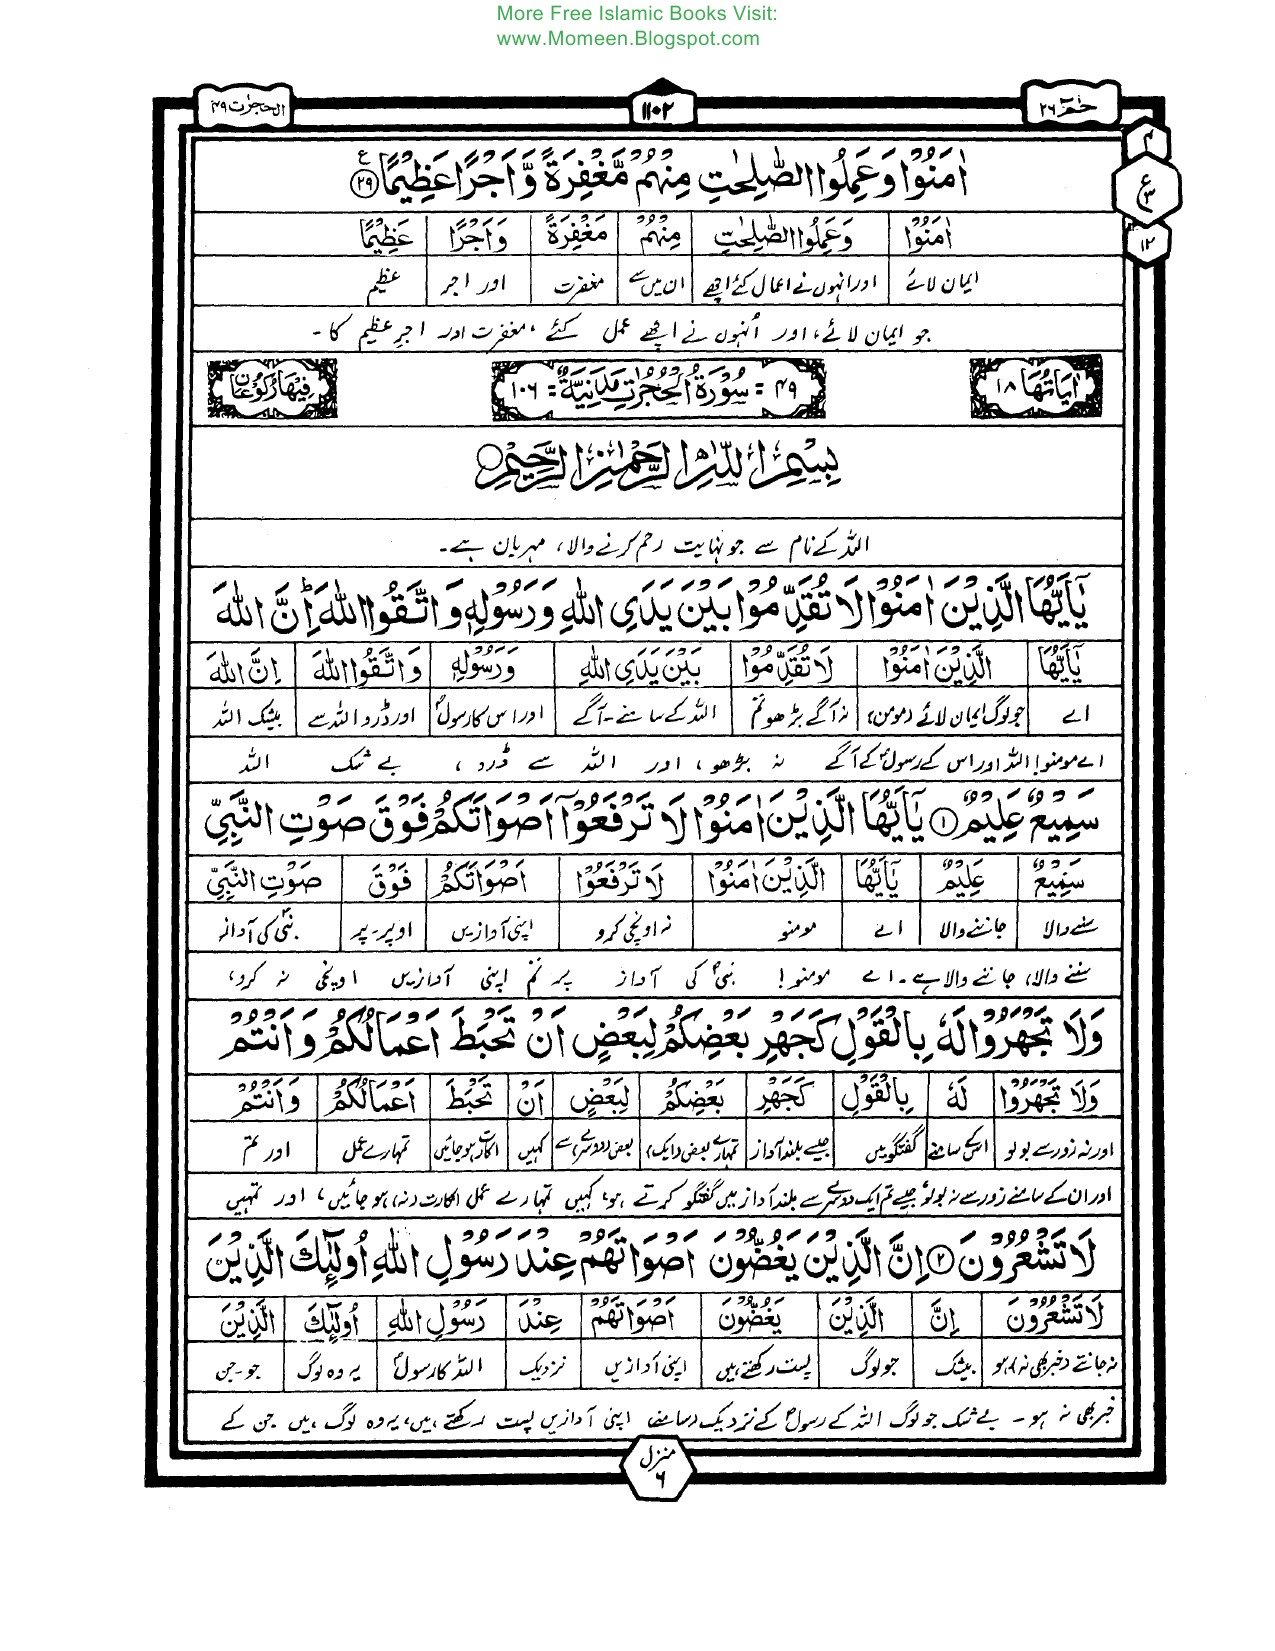 More Free Islamic Books Visit:
www.Momeen.Blogspot.com
حٰمٓ ٢٦
١١٠٢
الحجرٰت ٤٩
اٰمَنُوۡا وَعَمِلُوا الصّٰلِحٰتِ مِنۡهُمۡ مَّغۡفِرَةً وَّاَجۡرًا عَظِيۡمًا ٢٩ ع
٤
ع ٣
١٢
اٰمَنُوۡا وَعَمِلُوا الصّٰلِحٰتِ مِنۡهُمۡ مَغۡفِرَةً وَاَجۡرًا عَظِيۡمًا
ایمان لائے اور انہوں نے اعمال کئے اچھے ان میں سے مغفرت اور اجر عظیم
جو ایمان لائے، اور اُنہوں نے اچھے عمل کئے، مغفرت اور اجرِ عظیم کا۔
اٰيَاتُهَا ١٨
٤٩ = سُوۡرَةُ الۡحُجُرٰتِ مَدَنِيَّةٌ = ١٠٦
فِيۡهَا رُكُوۡعَانِ
بِسۡمِ اللّٰهِ الرَّحۡمٰنِ الرَّحِيۡمِ
اللہ کے نام سے جو نہایت رحم کرنے والا، مہربان ہے۔
يٰۤاَيُّهَا الَّذِيۡنَ اٰمَنُوۡا لَا تُقَدِّمُوۡا بَيۡنَ يَدَىِ اللّٰهِ وَرَسُوۡلِهٖ وَاتَّقُوا اللّٰهَ ؕ اِنَّ اللّٰهَ
يٰۤاَيُّهَا الَّذِيۡنَ اٰمَنُوۡا لَا تُقَدِّمُوۡا بَيۡنَ يَدَىِ اللّٰهِ وَرَسُوۡلِهٖ وَاتَّقُوا اللّٰهَ اِنَّ اللّٰهَ
اے جو لوگ ایمان لائے (مومن) نہ آگے بڑھو تم اللہ کے سامنے۔آگے اور اس کا رسولؐ اور ڈرو اللہ سے بیشک اللہ
اے مومنو! اللہ اور اس کے رسولؐ کے آگے نہ بڑھو، اور اللہ سے ڈرو، بے شک اللہ
سَمِيۡعٌ عَلِيۡمٌ ١ يٰۤاَيُّهَا الَّذِيۡنَ اٰمَنُوۡا لَا تَرۡفَعُوۡۤا اَصۡوَاتَكُمۡ فَوۡقَ صَوۡتِ النَّبِىِّ
سَمِيۡعٌ عَلِيۡمٌ يٰۤاَيُّهَا الَّذِيۡنَ اٰمَنُوۡا لَا تَرۡفَعُوۡا اَصۡوَاتَكُمۡ فَوۡقَ صَوۡتِ النَّبِىِّ
سننے والا جاننے والا اے مومنو نہ اونچی کرو اپنی آوازیں اوپر۔پر نبیؐ کی آواز
سننے والا، جاننے والا ہے۔ اے مومنو! نبیؐ کی آواز پر تم اپنی آوازیں اونچی نہ کرو،
وَلَا تَجۡهَرُوۡا لَهٗ بِالۡقَوۡلِ كَجَهۡرِ بَعۡضِكُمۡ لِبَعۡضٍ اَنۡ تَحۡبَطَ اَعۡمَالُكُمۡ وَاَنۡتُمۡ
وَلَا تَجۡهَرُوۡا لَهٗ بِالۡقَوۡلِ كَجَهۡرِ بَعۡضِكُمۡ لِبَعۡضٍ اَنۡ تَحۡبَطَ اَعۡمَالُكُمۡ وَاَنۡتُمۡ
اور نہ زور سے بولو اسکے سامنے گفتگو میں جیسے بلند آواز تمہارے بعض (ایک) بعض (دوسرے) سے کہیں اکارت ہو جائیں تمہارے عمل اور تم
اور ان کے سامنے زور سے نہ بولو جیسے تم ایک دوسرے سے بلند آواز میں گفتگو کرتے ہو، کہیں تمہارے عمل اکارت (نہ) ہو جائیں، اور تمہیں
لَا تَشۡعُرُوۡنَ ٢ اِنَّ الَّذِيۡنَ يَغُضُّوۡنَ اَصۡوَاتَهُمۡ عِنۡدَ رَسُوۡلِ اللّٰهِ اُولٰٓٮِٕكَ الَّذِيۡنَ
لَا تَشۡعُرُوۡنَ اِنَّ الَّذِيۡنَ يَغُضُّوۡنَ اَصۡوَاتَهُمۡ عِنۡدَ رَسُوۡلِ اللّٰهِ اُولٰٓٮِٕكَ الَّذِيۡنَ
نہ جانتے (خبر بھی نہ) ہو بیشک جو لوگ پست رکھتے ہیں اپنی آوازیں نزدیک اللہ کا رسولؐ یہ وہ لوگ جو۔جن
خبر بھی نہ ہو۔ بے شک جو لوگ اللہ کے رسولؐ کے نزدیک (سامنے) اپنی آوازیں پست رکھتے ہیں، یہ وہ لوگ ہیں جن کے
منزل ٦